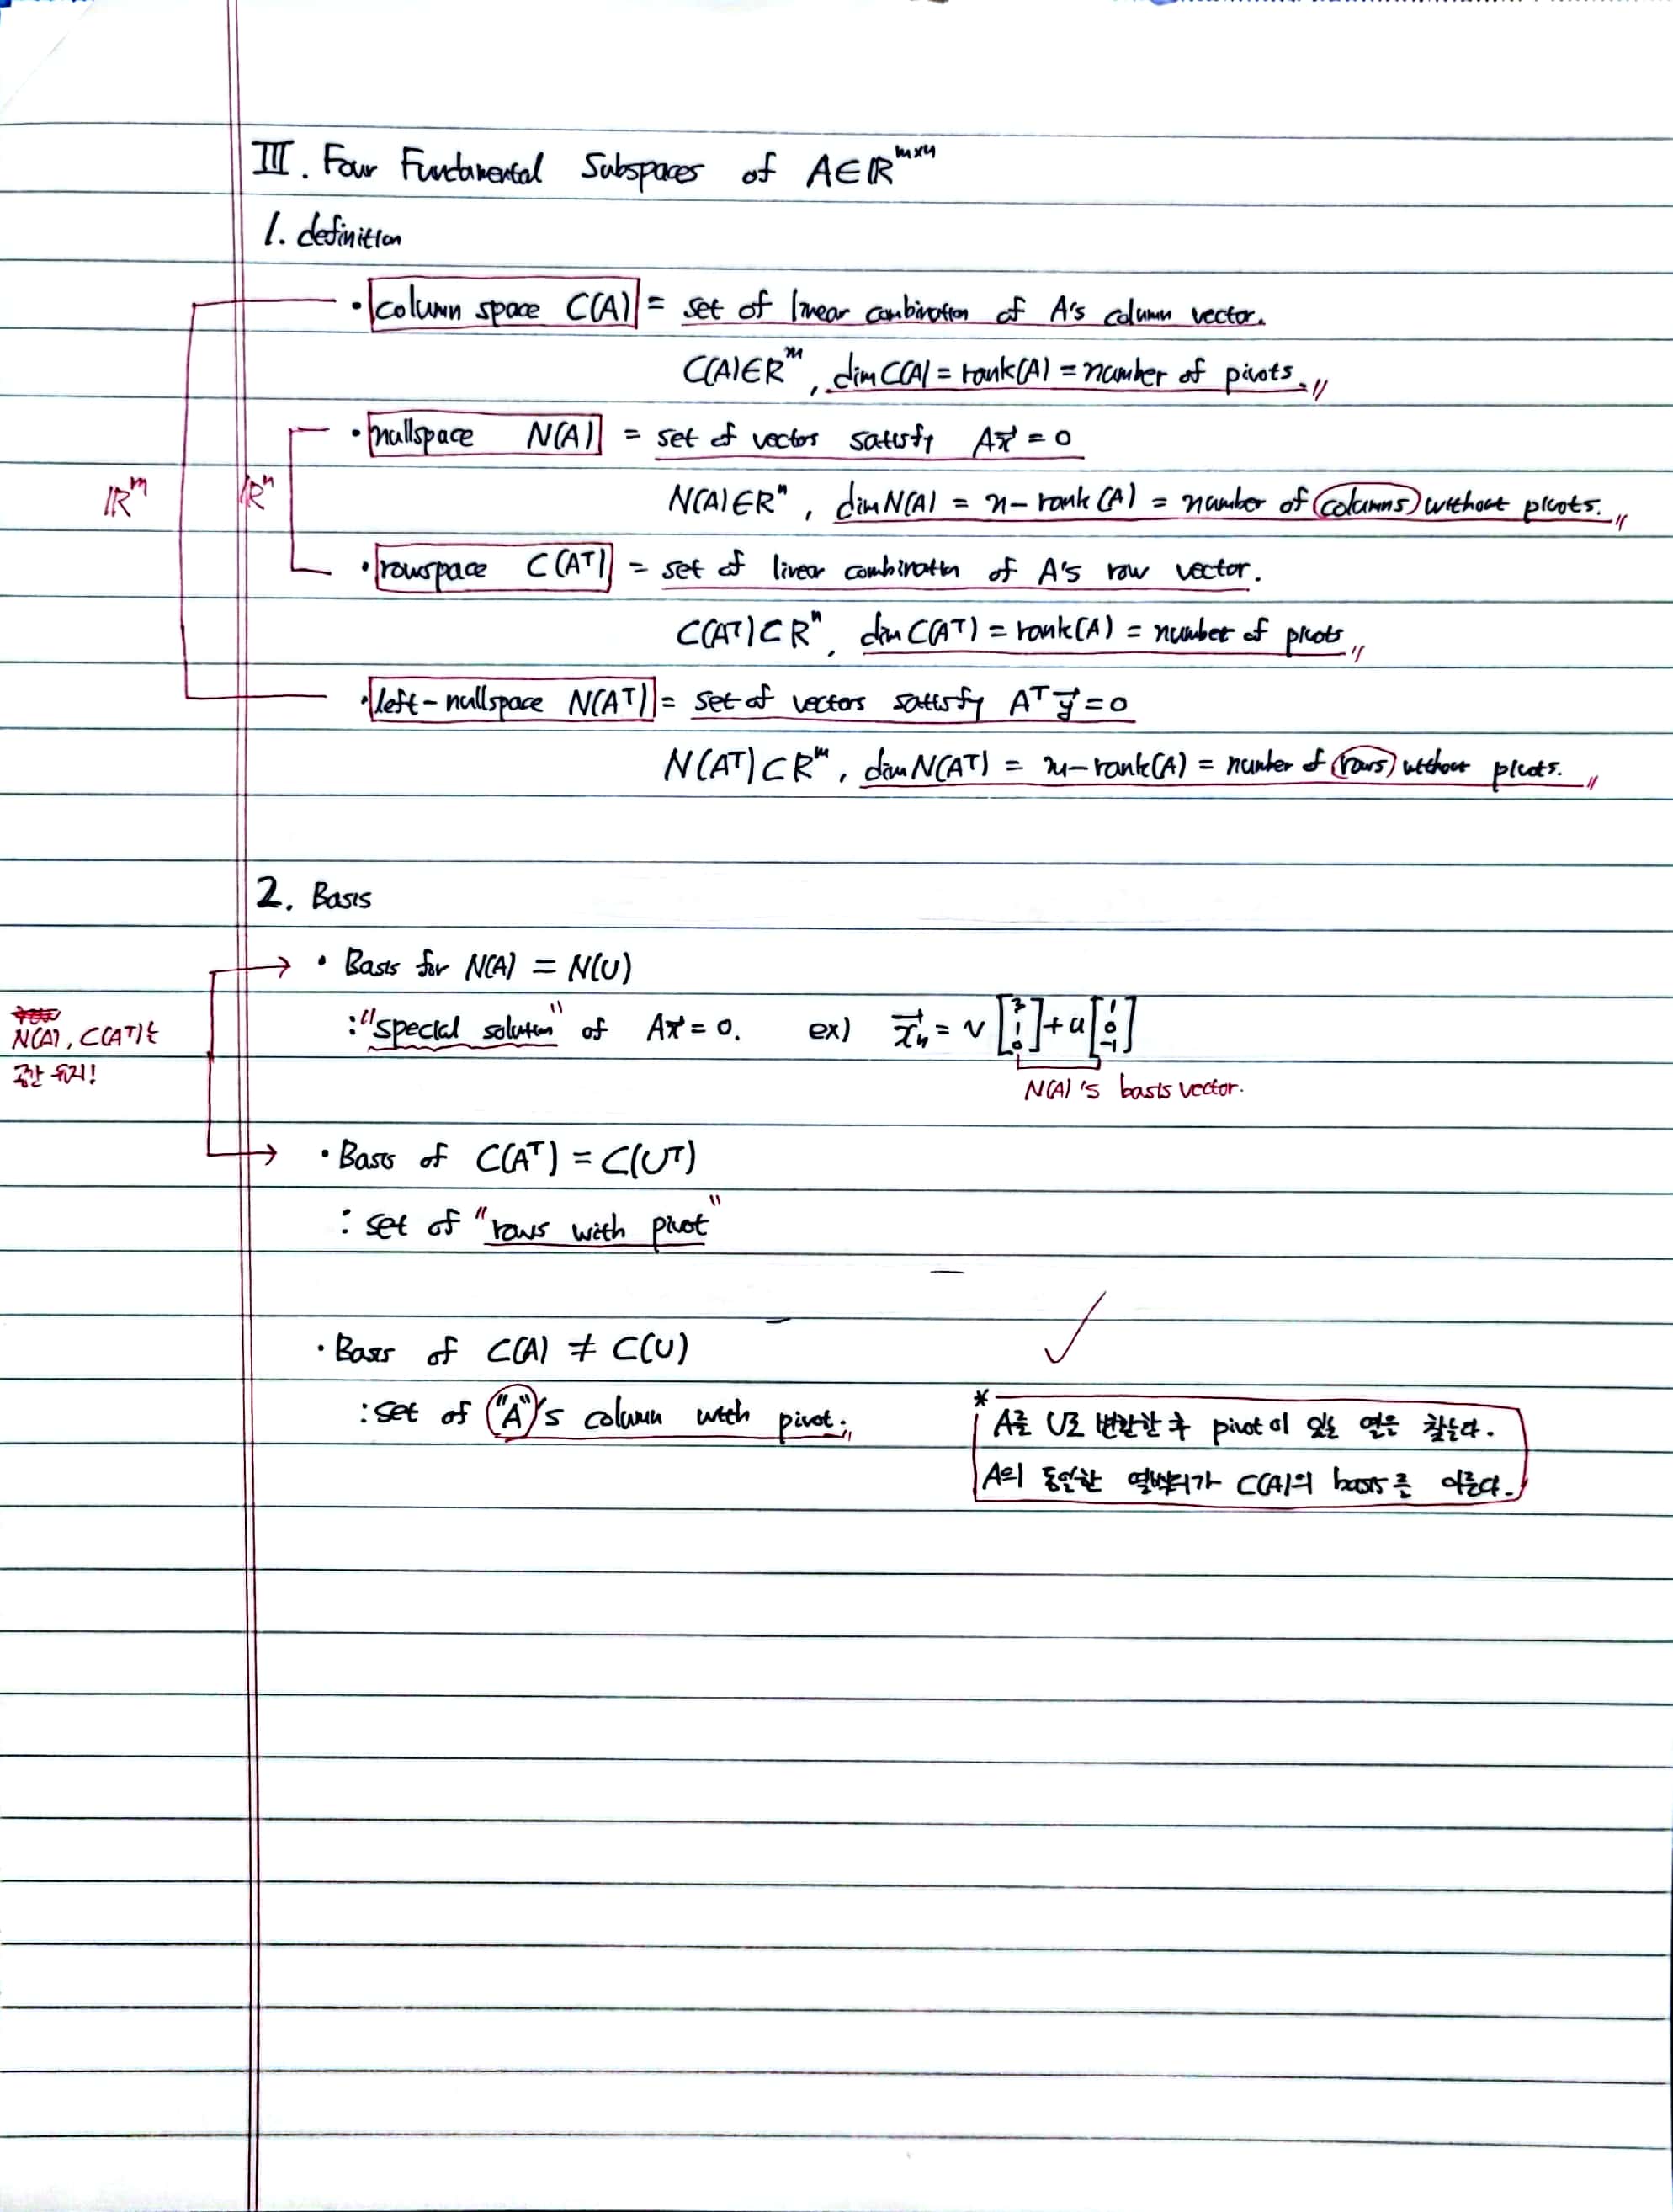 III. Four Fundamental Subspaces of A∈ℝ^{m×n}
1. definition
• column space C(A) = set of linear combination of A's column vector.
C(A)∈R^m, dim C(A) = rank(A) = number of pivots.
• nullspace N(A) = set of vectors satisfy Ax⃗ = 0
ℝ^m ℝ^n N(A)∈R^n, dim N(A) = n - rank(A) = number of columns without pivots.
• rowspace C(A^T) = set of linear combination of A's row vector.
C(A^T)⊂R^n, dim C(A^T) = rank(A) = number of pivots
• left-nullspace N(A^T) = set of vectors satisfy A^T y⃗ = 0
N(A^T)⊂R^m, dim N(A^T) = m - rank(A) = number of rows without pivots.
2. Basis
• Basis for N(A) = N(U)
N(A), C(A^T)는
공간 유지!
: "special solution" of Ax⃗ = 0. ex) x⃗_n = v[3 1 0] + u[1 0 -1]
N(A)'s basis vector.
• Basis of C(A^T) = C(U^T)
: set of "rows with pivot"
• Basis of C(A) ≠ C(U)
: set of "A"'s column with pivot.
* A를 U로 변환한 후 pivot이 있는 열은 찾는다.
A의 동일한 열벡터가 C(A)의 basis를 이룬다.